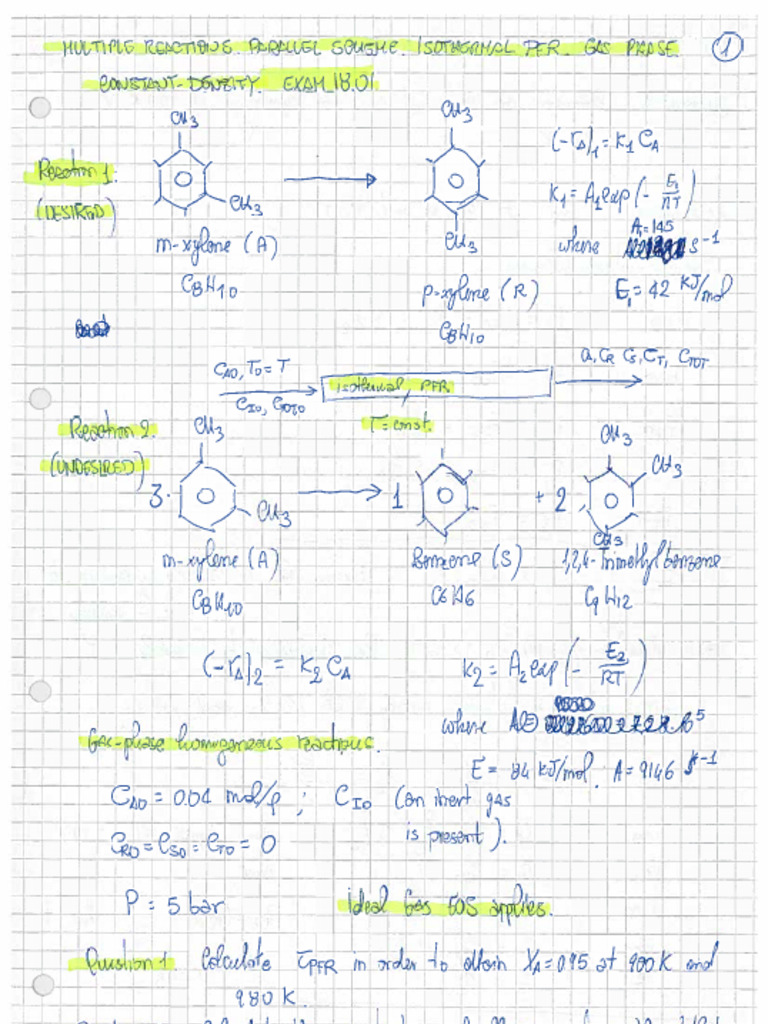 MULTIPLE REACTIONS. PARALLEL SCHEME. ISOTHERMAL PFR. GAS PHASE
1
CONSTANT-DENSITY. EXAM 18.01
Reaction 1:
(DESIRED)
CH3
CH3
m-xylene (A)
C8H10
CH3
CH3
p-xylene (R)
C8H10
(-rA)1 = K1 CA
K1 = A1 exp(- E1/RT)
A1=145
where s-1
E1 = 42 KJ/mol
CA0, T0 = T
CI0, CTOT0
isothermal, PFR
CR CS, CT, CTOT
T = const.
Reaction 2.
(UNDESIRED)
3.
CH3
CH3
m-xylene (A)
C8H10
1
Benzene (S)
C6H6
+ 2
CH3
CH3
CH3
1,2,4-Trimethylbenzene
C9H12
(-rA)2 = K2 CA
K2 = A2 exp(- E2/RT)
where
Gas-phase homogeneous reactions.
E = 84 KJ/mol. A = 9146 s-1
CA0 = 0.04 mol/l ; CI0 (an inert gas
is present).
CR0 = CS0 = CT0 = 0
P = 5 bar
Ideal Gas EOS applies.
Question 1. Calculate τPFR in order to obtain XA = 0.95 at 900 K and
980 K.